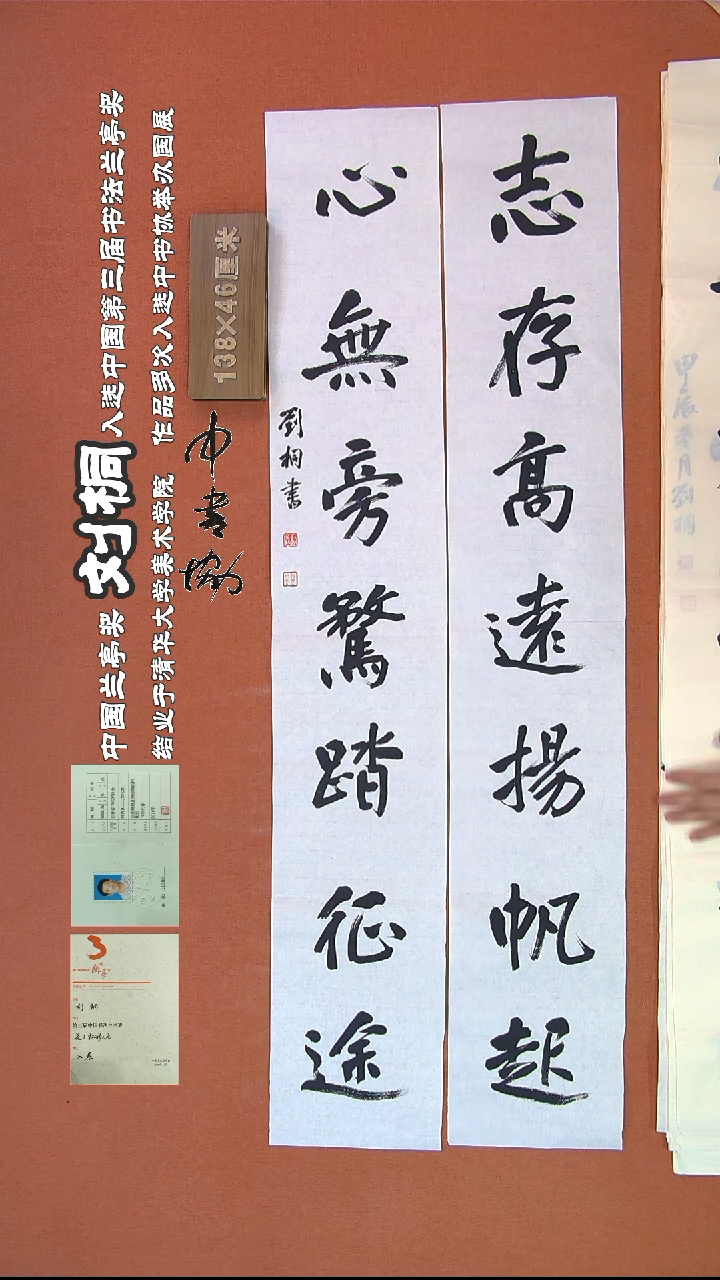 志存高遠揚帆起
心無旁騖踏征途
劉桐書
138×46厘米
中国兰亭奖 刘桐 入选中国第三届书法兰亭奖
结业于清华大学美术学院 作品多次入选中书协举办国展
中書協
甲辰冬月劉桐